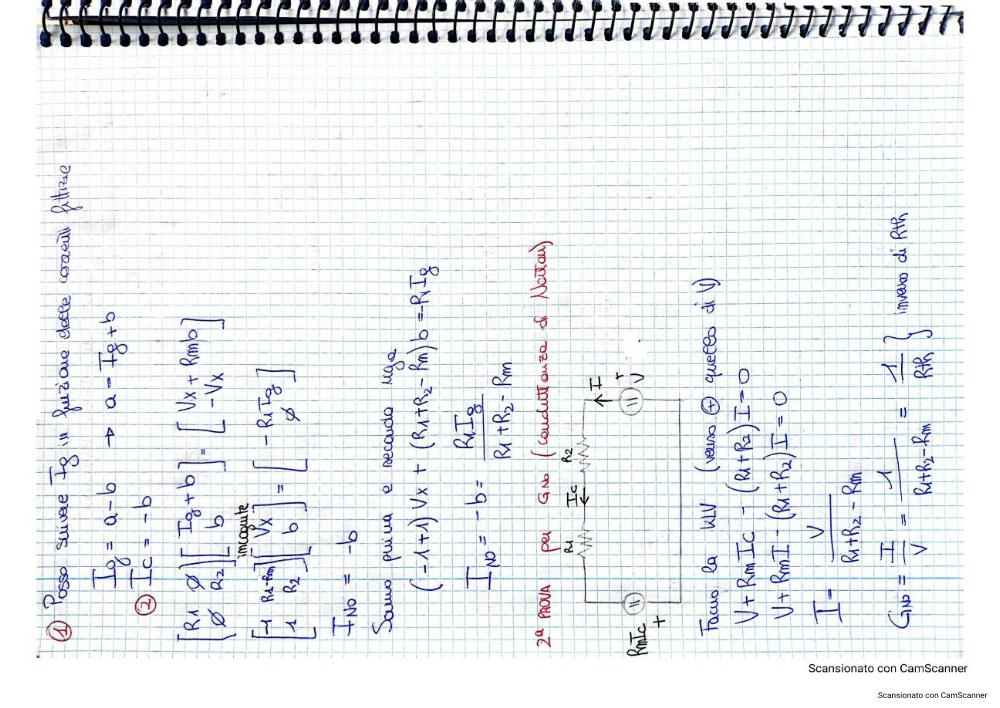 ① Posso scrivere Ig in funzione delle correnti fittizie
Ig = a-b → a = Ig+b
② Ic = -b
[R1 Ø] [Ig+b] = [Vx + Rmb]
[Ø R2] [b] [-Vx]
incognite
[-1 R1-Rm] [Vx] = [-R1Ig]
[1 R2] [b] [Ø]
INO = -b
Sommo prima e seconda riga
(-1+1) Vx + (R1+R2-Rm)b = -R1Ig
INO = -b = R1Ig
R1+R2-Rm
2ª PROVA per GNO (conduttanza di Norton)
R1 Ic R2 I
RmIc + + V
Faccio la KLV (verso ⊕ quello di V)
V+RmIc - (R1+R2)I = 0
V+RmI - (R1+R2)I = 0
I = V
R1+R2-Rm
GNO = I = 1 = 1 } inverso di Rth
V R1+R2-Rm Rth
Scansionato con CamScanner
Scansionato con CamScanner